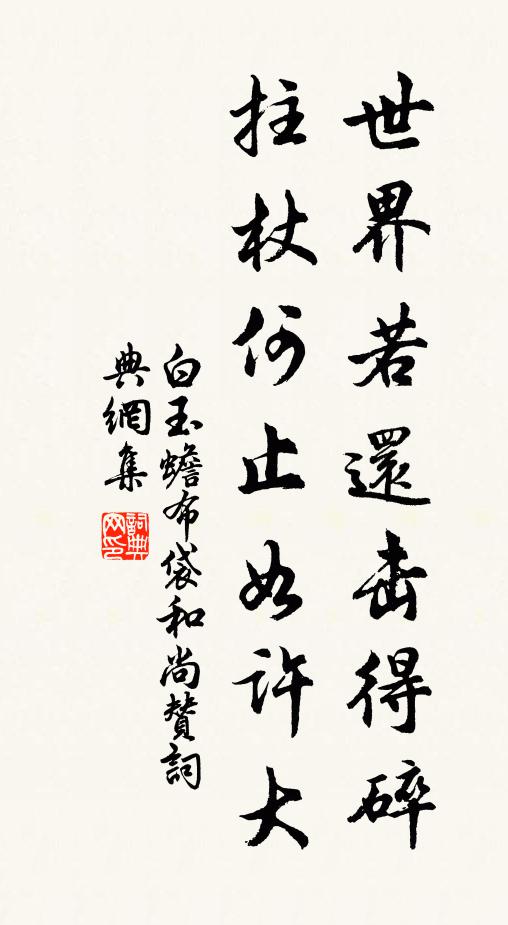 世界若還击得碎
拄杖何止如许大
白玉蟾布袋和尚赞詞
典網集
詞典网印